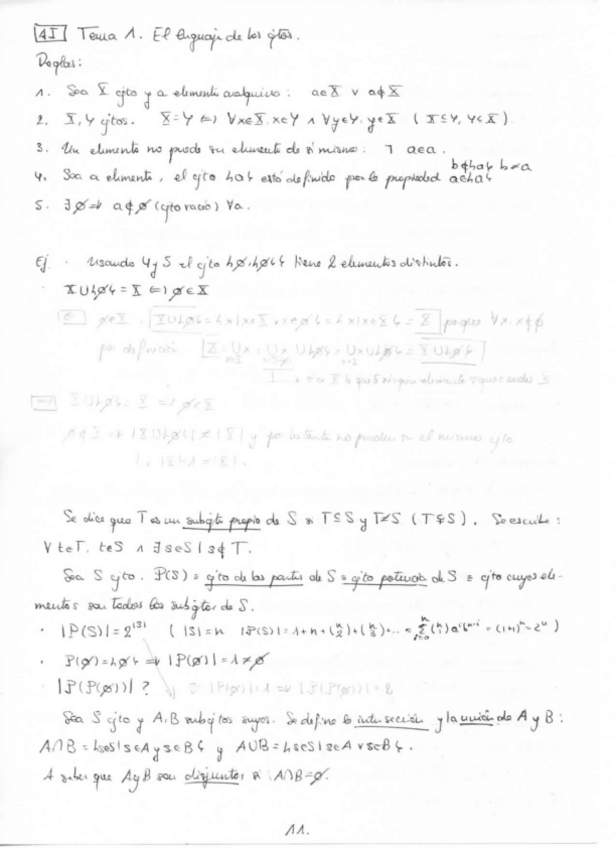 4I Tema 1. El lenguaje de los cjtos.
Reglas:
1. Sea X cjto y a elemento cualquiera: a∈X ∨ a∉X
2. X, Y cjtos. X=Y ⇔ ∀x∈X, x∈Y ∧ ∀y∈Y, y∈X (X⊆Y, Y⊆X)
3. Un elemento no puede ser elemento de sí mismo: ¬ a∈a.
4. Sea a elemento, el cjto {a} está definido por la propiedad a∈{a} b∉{a} b≠a
5. ∃∅ ⇒ a∉∅ (cjto vacío) ∀a.
Ej. · Usando 4 y 5 el cjto {∅,{∅}} tiene 2 elementos distintos.
· X∪{∅} = X ⇔ ∅∈X
⇐ ∅∈X. X∪{∅} = {x|x∈X ∨ x∈∅} = {x|x∈X} = X porque ∀x, x∉∅
por definición.
⇒ X∪{∅} = X ⇒ ∅∈X
∅∉X ⇒ |X∪{∅}| ≠ |X| y por lo tanto no pueden ser el mismo cjto
Se dice que T es un subcjto propio de S si T⊆S y T≠S (T⊊S). Se escribe:
∀t∈T, t∈S ∧ ∃s∈S | s∉T.
Sea S cjto. P(S) = cjto de las partes de S = cjto potencia de S = cjto cuyos ele-
mentos son todos los subcjtos de S.
· |P(S)| = 2^|S| ( |S|=n |P(S)| = 1+n+(n 2)+(n 3)+... = Σ(n i)a^i b^(n-i) = (1+1)^n = 2^n )
· P(∅) = {∅} ⇒ |P(∅)| = 1 ≠ ∅
· |P(P(∅))| ? Si |P(∅)| = 1 ⇒ |P(P(∅))| = 2
Sea S cjto y A, B subcjtos suyos. Se define la intersección y la unión de A y B:
A∩B = {s∈S | s∈A y s∈B} y A∪B = {s∈S | s∈A ∨ s∈B}.
A saber que A y B son disjuntos si A∩B = ∅.
11.